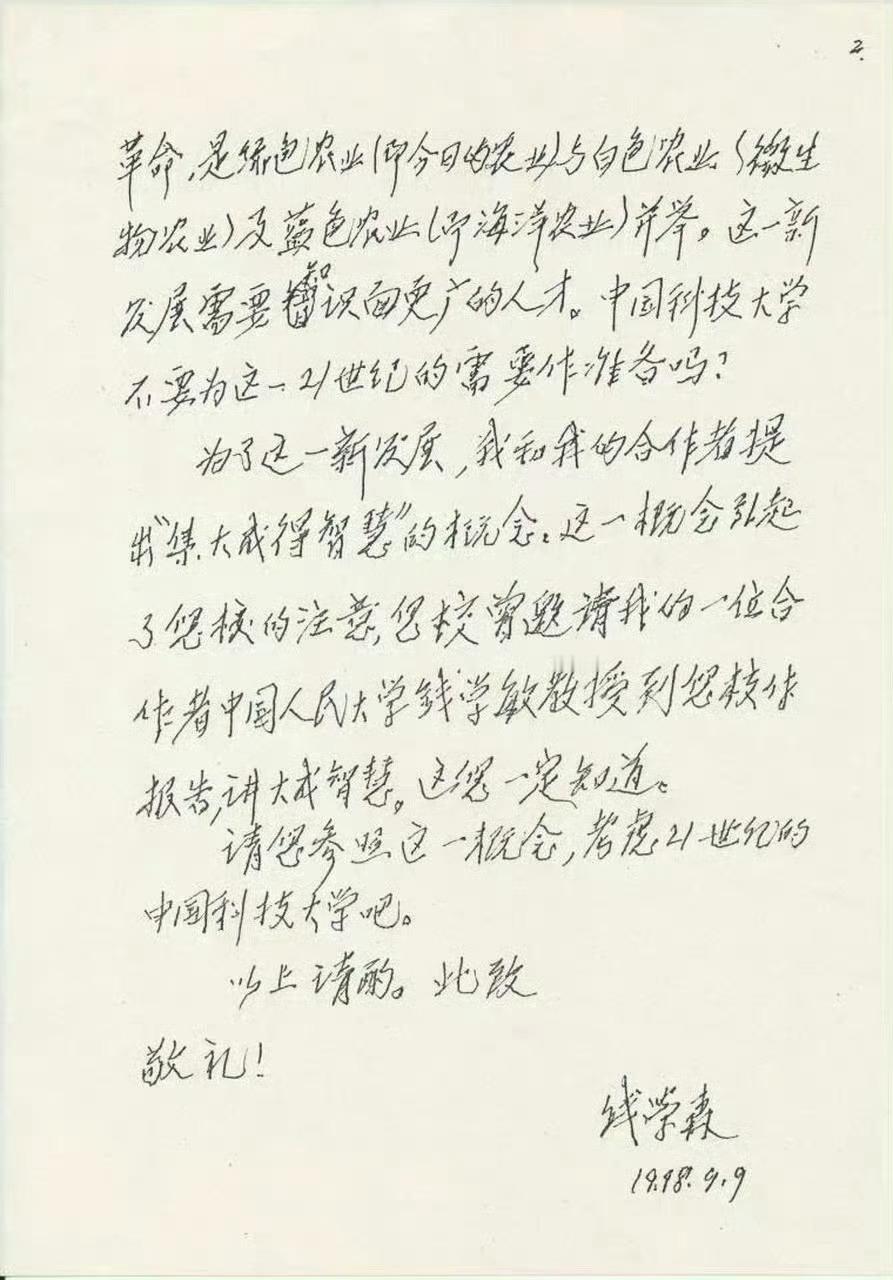 2.
革命，是绿色农业(即今日的农业)与白色农业(微生
物农业)及蓝色农业(即海洋农业)并举。这一新
发展需要智识面更广的人才。中国科技大学
不要为这一21世纪的需要作准备吗？
为了这一新发展，我和我的合作者提
出“集大成得智慧”的概念。这一概念引起
了您校的注意，您校曾邀请我的一位合
作者中国人民大学钱学敏教授到您校作
报告，讲大成智慧。这您一定知道。
请您参照这一概念，考虑21世纪的
中国科技大学吧。
以上请酌。此致
敬礼！
钱学森
1998.9.9